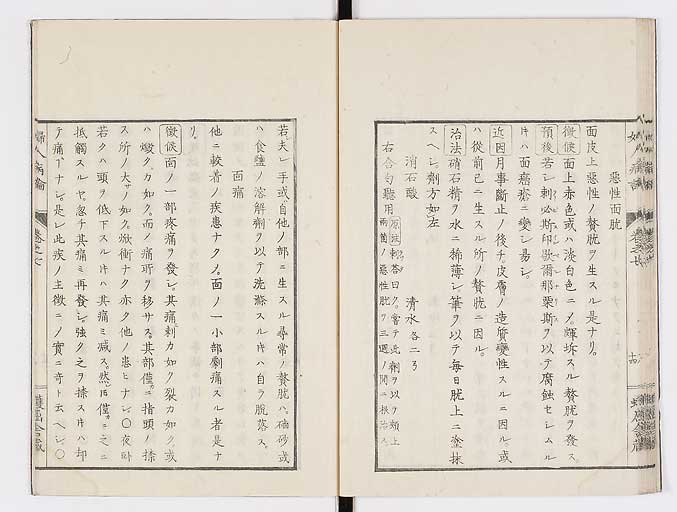 惡性面胧
面皮上惡性ノ贅胧ヲ生スル是ナリ。
徵候面上赤色或ハ淡白色ニノ。輝坼スル贅胧ヲ發ス。
預後若シ刺必斯印歇爾那栗斯ヲ以テ腐蝕セレムル
片ハ面癌瘡ニ變シ易シ。
近因月事斷止ノ後チ。皮膚ノ造質變性スルニ因ル。或
ハ從前已ニ生スル所ノ贅胧ニ因ル。
治法硝石精ヲ水ニ稀薄シ。筆ヲ以テ每日胧上ニ塗抹
スヘシ。劑方如左
消石酸 清水各二
右合勻聽用
原註刺答曰ク。嘗テ此劑ヲ以ヲ類上
兩箇ノ惡性胧ヲ三週ノ間ニ根治ス
若シ夫レ手或自他ノ部ニ生スル尋常ノ贅胧ハ。砂或
ハ食鹽ノ溶解劑ヲ以テ洗滌スル片ハ自ラ脫落ス。
面痛
他ニ較著ノ疾患ナクノ。面ノ一小部劇痛スル者是ナ
リ。
徵候面ノ一部疼痛ヲ發シ。其痛刺カ如ク裂カ如ク。或
ハ燉クカ如ク。而ノ痛所ヲ移サス。其部僅カニ指頭ノ搽
ス所ノ大サノ如ク。焮衝ナク亦タ他ノ患ヒナシ。○夜臥
若クハ頭ヲ低下スル片ハ其痛ミ減ス。然モ僅カニ之ニ
抵觸スルヤ。忽チ其痛ミ再發シ。強ク之ヲ搽ス片ハ却
テ痛ナシ。是レ此疾ノ主徵ニノ實ニ奇ト云ヘシ。○